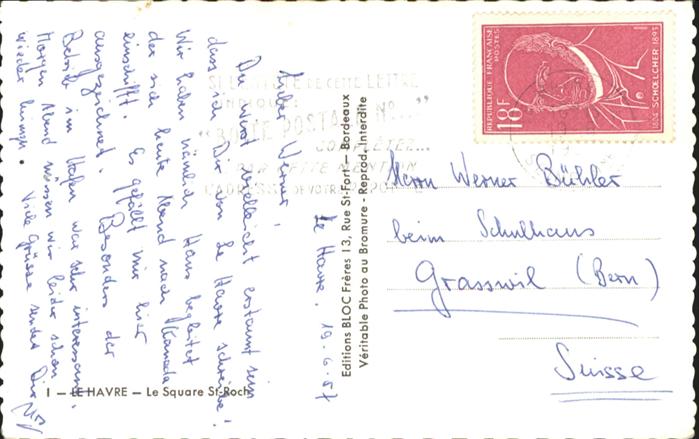 Le Havre, 19.6.57
Lieber Werner!
Du wirst vielleicht erstaunt sein
dass ich Dir von Le Havre schreibe!
Wir haben nämlich Hans begleitet
der sich heute Abend nach Kanada
einschifft. Es gefällt mir hier
ausgezeichnet. Besonders der
Betrieb im Hafen war sehr interessant.
Morgen Abend müssen wir leider schon
wieder heimzu. Viele Grüsse sendet Dir
1 — LE HAVRE — Le Square St-Roch
Editions BLOC Frères 13, Rue St-Fort — Bordeaux
Véritable Photo au Bromure - Reprod. Interdite
SI LE TEXTE DE CETTE LETTRE
INDIQUE:
"BOITE POSTALE No..."
COMPLETEZ
PAR CETTE MENTION
L'ADRESSE DE VOTRE
REPUBLIQUE FRANÇAISE
POSTES
18F
1804 SCHOELCHER 1893
Herrn Werner Bühler
beim Schulhaus
Grasswil (Bern)
Suisse